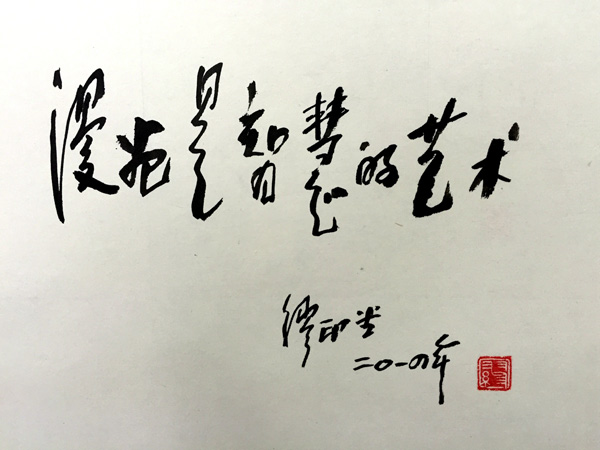 漫画是智慧的艺术
缪印堂
二〇一四年